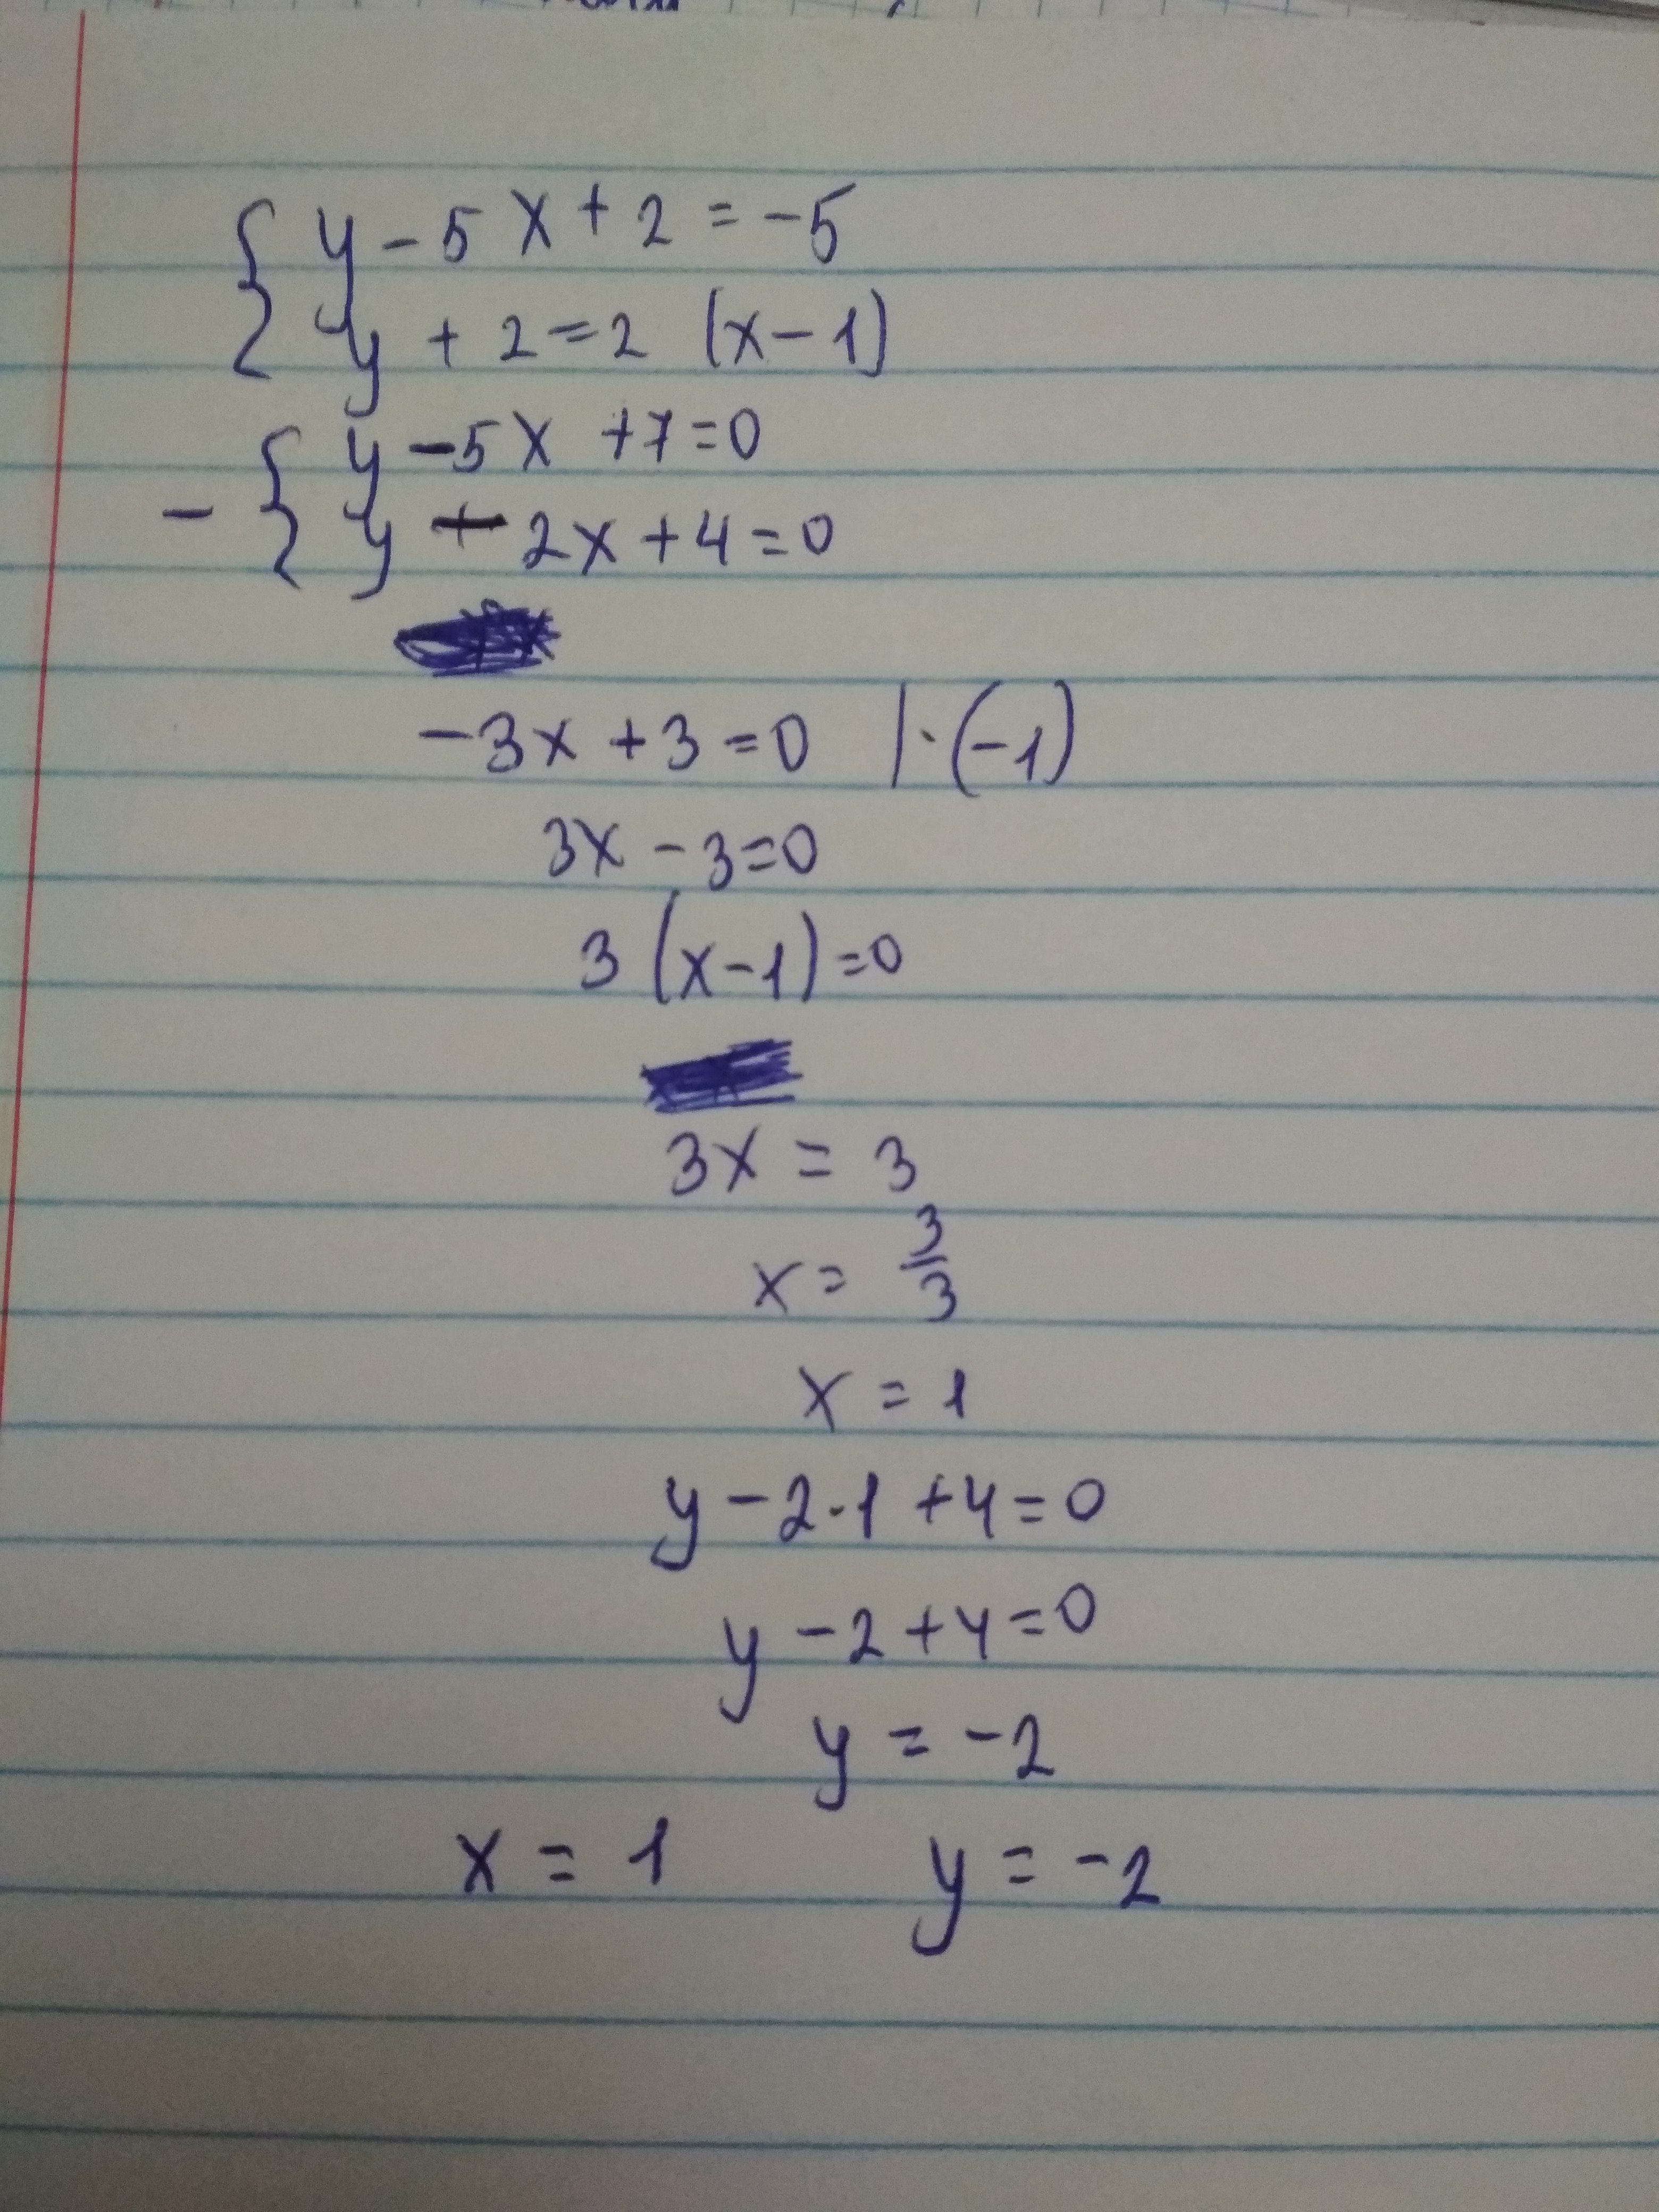 { y - 5x + 2 = -5
y + 2 = 2 (x - 1)
- { y - 5x + 7 = 0
y - 2x + 4 = 0
-3x + 3 = 0 | · (-1)
3x - 3 = 0
3 (x - 1) = 0
3x = 3
x = 3/3
x = 1
y - 2 · 1 + 4 = 0
y - 2 + 4 = 0
y = -2
x = 1 y = -2